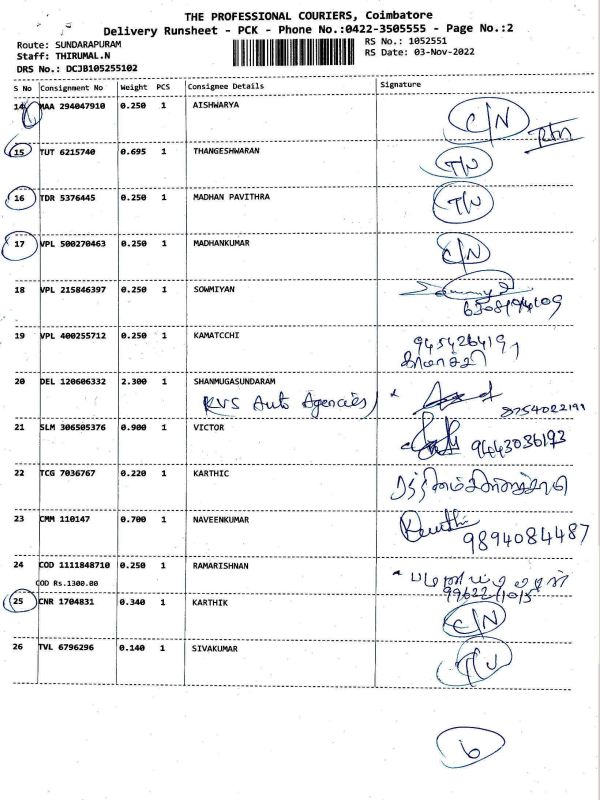 THE PROFESSIONAL COURIERS, Coimbatore
Delivery Runsheet - PCK - Phone No.:0422-3505555 - Page No.:2
Route: SUNDARAPURAM RS No.: 1052551
Staff: THIRUMAL.N RS Date: 03-Nov-2022
DRS No.: DCJB105255102
S No Consignment No Weight PCS Consignee Details Signature
14 MAA 294047910 0.250 1 AISHWARYA C/N Rtn
15 TUT 6215740 0.695 1 THANGESHWARAN T/N
16 TDR 5376445 0.250 1 MADHAN PAVITHRA T/N
17 VPL 500270463 0.250 1 MADHANKUMAR C/N
18 VPL 215846397 0.250 1 SOWMIYAN
19 VPL 400255712 0.250 1 KAMATCCHI 9454264191
காமாட்சி
20 DEL 120606332 2.300 1 SHANMUGASUNDARAM
KVS Auto Agencies 8754022199
21 SLM 306505376 0.900 1 VICTOR 9443036193
22 TCG 7036767 0.220 1 KARTHIC
23 CMM 110147 0.700 1 NAVEENKUMAR
9894084487
24 COD 1111848710 0.250 1 RAMARISHNAN
COD Rs.1300.00
25 CNR 1704831 0.340 1 KARTHIK C/N
26 TVL 6796296 0.140 1 SIVAKUMAR T/N
6